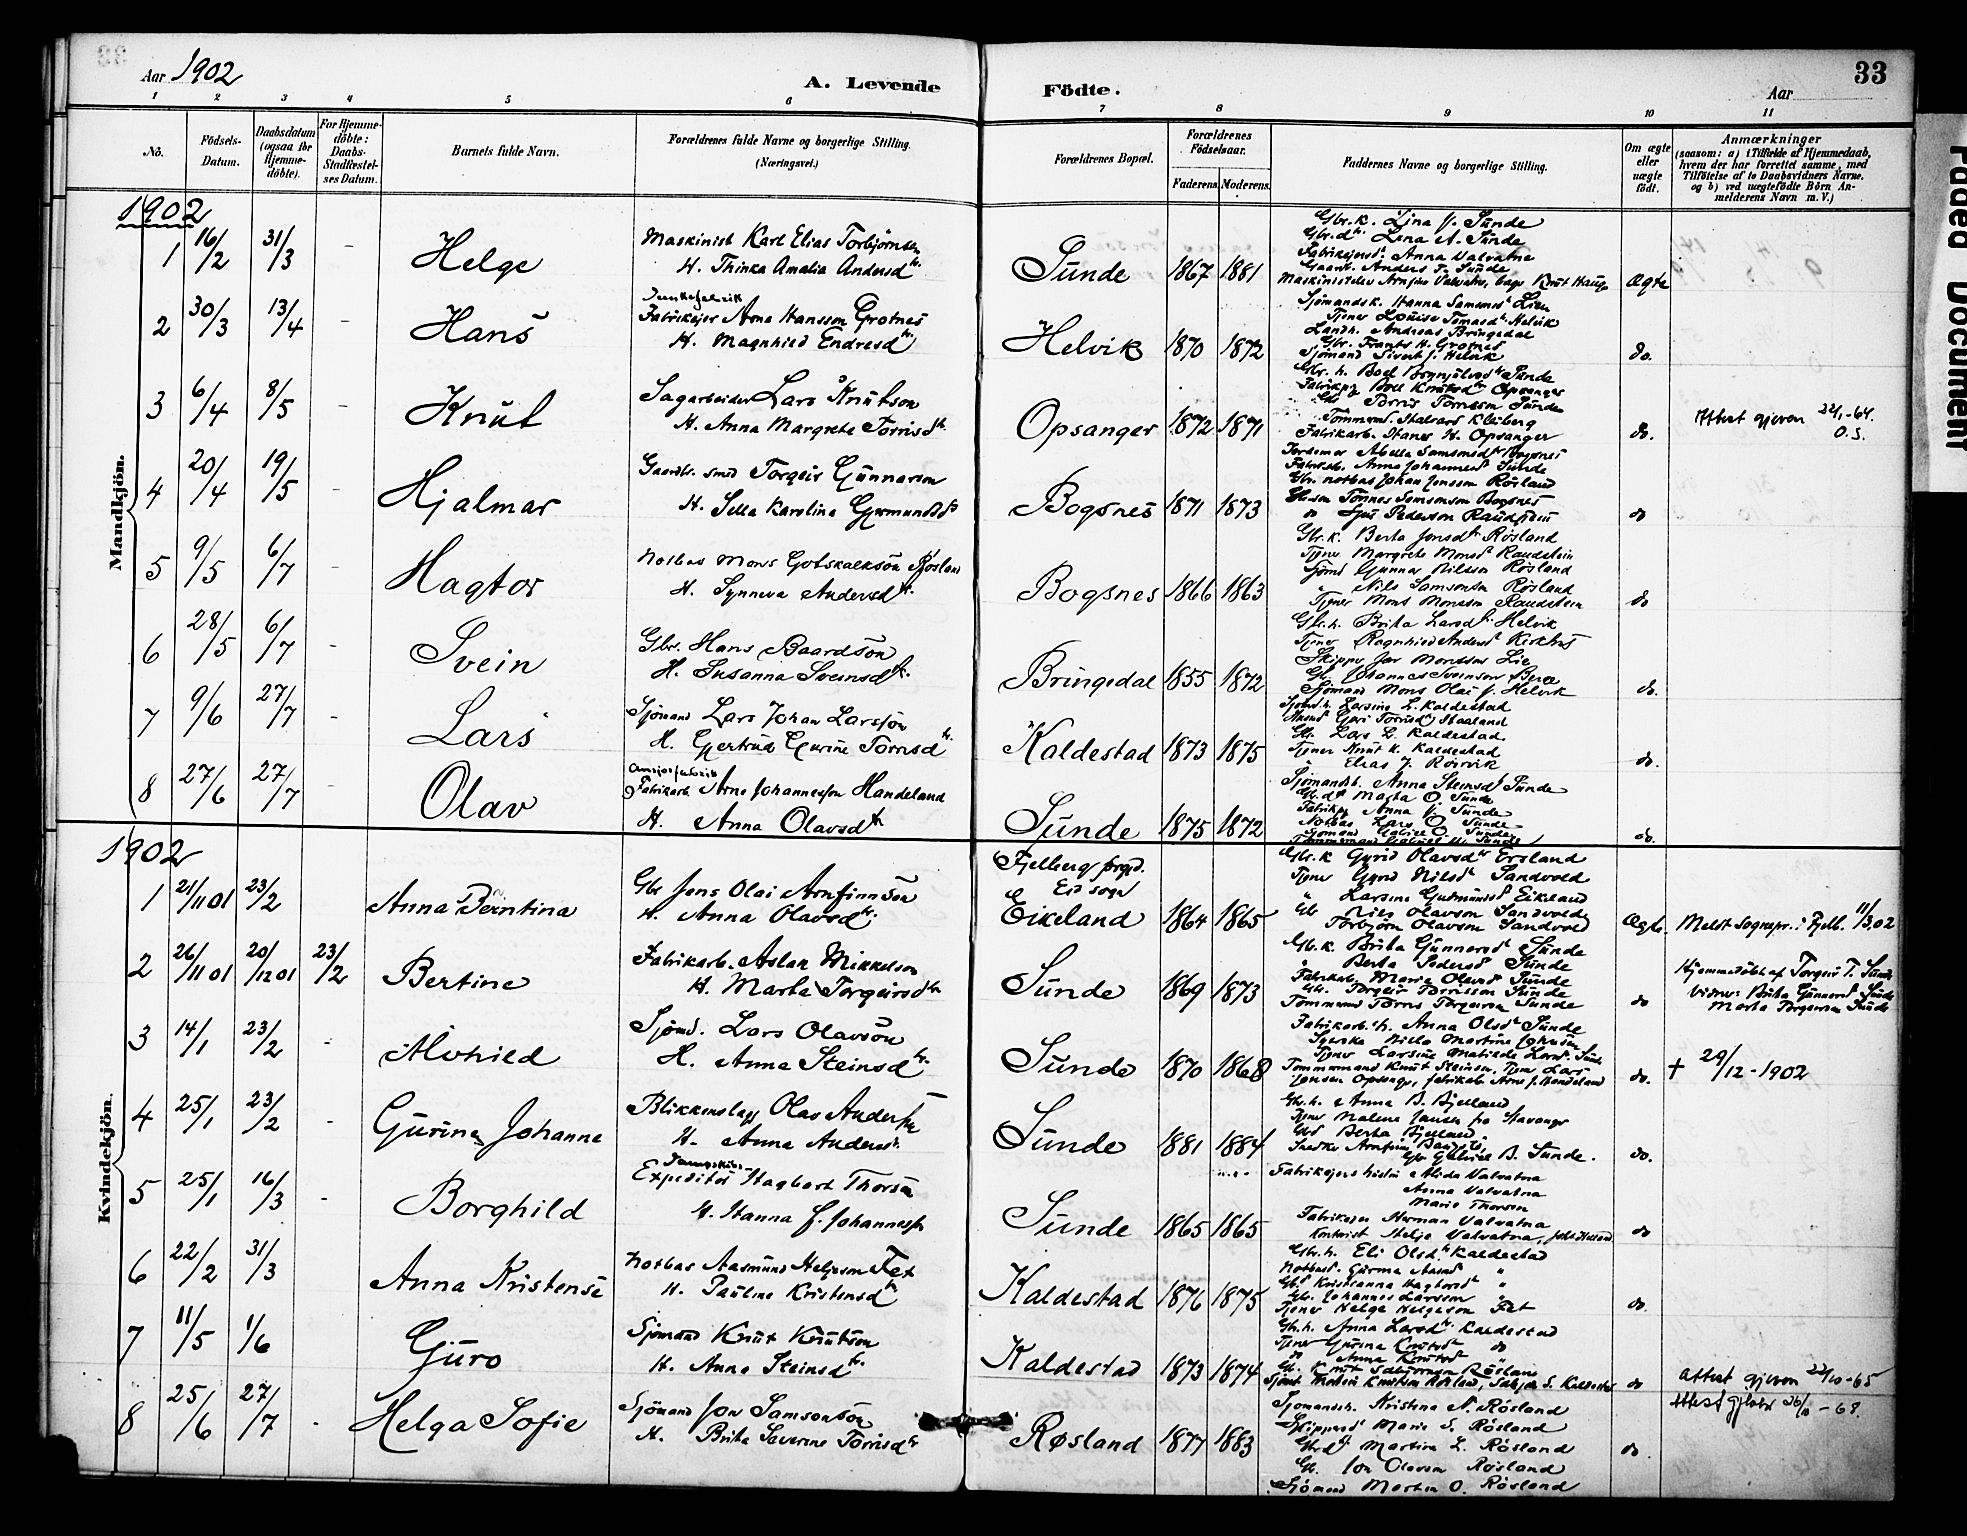 33
Aar 1902
A. Levende
Födte.
Aar
1 2 3 4 5 6 7 8 9 10 11
No.
Födsels-
Datum.
Daabsdatum
(ogsaa for
Hjemme-
döbte).
For Hjemme-
döbte:
Daabs-
Stadfæstel-
ses Datum.
Barnets fulde Navn.
Forældrenes fulde Navne og borgerlige Stilling.
(Næringsvei.)
Forældrenes Bopæl.
Forældrenes
Födselsaar.
Faderens. Moderens.
Faddernes Navne og borgerlige Stilling.
Om ægte
eller
uægte
födt.
Anmærkninger
(saasom: a) i Tilfælde af Hjemmedaab,
hvem der har forrettet samme, med
Tilföielse af to Daabsvidners Navne.
og b) ved uægtefödte Börn An-
melderens Navn m. V.)
Mandkjön.
1902
1 16/2 31/3 - Helge
Maskinist Karl Elias Torbjørnsen
H. Thinka Amalia Andersdtr.
Sunde 1867 1881
Gbr.k. Lina J. Sunde
Gbr.dtr. Lena A. Sunde
Anna Valvatna
Gaardb. Anders T. Sunde
Knut Hauge
Ægte
2 30/3 13/4 - Hans
Fabrikejer Arne Hanssen Grotnes
H. Magnhild Endresdtr.
Helvik 1870 1872
Sjömandsk. Hanna Samsonsdtr Lien
Tjener Louise Helvik
Landh. Andreas Bringedal
Gbr. Frants H. Grotnes
Sjömand Sivert J. Helvik
do.
3 6/4 8/5 - Knut
Sagarbeider Lars Knutson
H. Anna Margrete Torrisdtr.
Opsanger 1872 1871
Gbr. h. Boel Brynjulvsdtr Sunde
Fabrikpg. Boel Knutsdtr Opsanger
Gbr Torris Torrisson Sunde
Tömmermd. Halvard Kleiberg
Fabrikarb. Hans H. Opsanger
do.
Attest gjeven 22/1-64.
O.S.
4 20/4 19/5 - Hjalmar
Gaardbr. smed Torgeir Gunnarson
H. Sella Karolina Gjermundsdtr
Bogsnes 1871 1873
Jordemor Abella Samsonsdtr Bogsnes
Anna Johannesdtr Sunde
Gbr. notbas Johan Jonsson Rösland
Gbrsøn Tönnes Samsonson Bogsnes
do Pederson Raudstein
do
5 9/5 6/7 - Hagtor
Notbas Mons Gotskalkson Røsland
H. Synneva Andersdtr.
Bogsnes 1866 1863
Gbr.k. Berta Jonsdtr Røsland
Tjener Margrete Monsdtr Raudstein
Sjömd Gunnar Nilsson Røsland
" Nils Samsonson Røsland
Tjener Mons Monsson Raudstein
do
6 28/5 6/7 - Svein
Gbr. Hans Baardson
H. Susanna Sveinsdtr.
Bringedal 1855 1872
Gbr.h. Brita Larsdtr Helvik
Tjener Ragnhild Andersdtr
Skipper Jar Monssen Lie
Gbr. Johannes Sveinson Berge
Sjömand Mons Olai J. Helvik
do.
7 9/6 27/7 - Lars
Sjömand Lars Johan Larsson
H. Gjertrud Gurine Torrisdtr.
Kaldestad 1873 1875
Sjömd.h. Larsine L. Kaldestad
Guri Torrisdtr Haaland
Gbr. Lars L. Kaldestad
Tjener Knut K. Kaldestad
" Elias J. Rösvik
do.
8 27/6 27/7 - Olav
Ansjosfabrik
Fabrikarb. Arne Johannesson Handeland
H. Anna Olavsdtr
Sunde 1875 1872
Sjömandsh. Anna Steinsdtr Sunde
Gbr.dtr Marta O. Sunde
Anna V. Sunde
Notbas Lars O. Sunde
Sjömand Gabriel O. Sunde
do.
Kvindekjön.
1902
1 21/11 01 23/2 Anna Berntina
Gbr Jens Olai Arnfinnson
H. Anna Olavsdtr.
Fjelberg prgd.
Eid sogn
Eikeland 1864 1865
Gbr.k Gyrid Olavsdtr Ersland
Tjener Gyrid Nilsdtr Sandvold
" Larsine Gudmundsdtr Eikeland
Gbr Nils Olavson Sandvold
Torbjörn Olavson Sandvold
Ægte. Meldt Sognepr. i Fjelb. 11/3.02
2 26/11 01 20/12 01 23/2 Bertine
Fabrikarb. Aslak Mikkelson
H. Marta Torgeirsdtr
Sunde 1869 1873
Gbr.k. Brita Gunnarsdtr Sunde
" Berta Pedersdtr Sunde
Fabrikarb. Marie Olavsdtr Sunde
Gbr. Torgeir Torrisson Sunde
Tömmermd Torris Torgeirson Sunde
do
Hjemmedöbt af Torgeir T. Sunde
Vidner: Brita Gunnarsdtr Sunde
Marta Torgeirson Sunde
3 14/1 23/2 - Alvhild
Sjömd. Lars Olavson
H. Anna Steinsdtr.
Sunde 1870 1868
Fabrikarb.h. Anna Olsdtr Sunde
Martine Johnsen
Tjener Larsine Matilde Larsdtr. Sunde
Tömmermand Knut Steinson, Tjener Lars
Jonsen Opsanger, fabrikarb. Arne J. Handeland
do. † 29/12-1902
4 25/1 23/2 - Gurina Johanne
Blikkenslag. Olav Anderssen
H. Anna Andersdtr.
Sunde 1881 1884
Gbr.h. Anna B. Bjelland
Tjener Malene Jensen fra Stavanger
Berta Bjelland
Snedker Arnfinn
Gbr Gabriel B. Sunde.
do.
5 25/1 16/3 - Borghild
Dampskibs-
Expeditör Hagbart Thorsen
H. Hanna J. Johannessen
Sunde 1865 1865
Fabrikejers hustru Alida Valvatna
Anna Valvatna
Marie Thorsen
Fabrikejer Herman Valvatna
Kontorist Helge Valvatna,
do
6 22/2 31/3 - Anna Kristense
Notbas Aasmund Helgeson Fet
H. Pauline Kristensdtr
Kaldestad 1876 1875
Gbr.h. Eli Olsdtr Kaldestad
Notbasd. Gurina Aasmd "
Gbrd Kristianna Hagtorsdtr "
Gbr. Johannes Larsson "
Tjener Helge Helgeson Fet
do.
7 11/5 1/6 Guro
Sjömand Knut Knutson
H. Anna Steinsdtr.
Kaldestad 1873 1874
Gbr.h. Anna Larsdtr. Kaldestad
Tjener Gurina Knutsdtr do
do Anna Knutsdtr
Gbr. Knut Salamonson Røsland
Sjömd Mathias Knutson Røsland, S. Kaldestad
do Attest gjeven 22/10-65
8 25/6 27/7 - Helga Sofie
Sjömand Jon Samsonson
H. Brita Severine Torrisdtr
Røsland 1877 1883
Sjömandsh. Kristina N. Røsland
Skippersd Marie S. Røsland
Gbrdtr Martine L. Røsland
Gbr. Jon Olavson Røsland
Sjömand Morten O. Røsland
do
Attest 26/10-68.
Faded Document